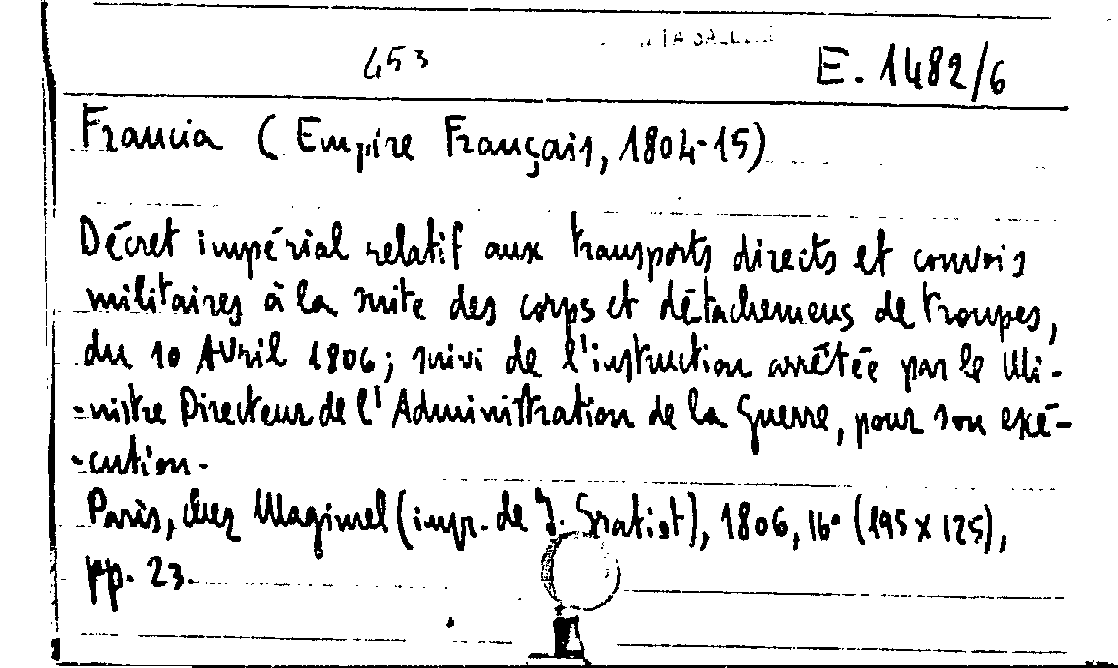 453 E. 1482/6
Francia (Empire Français, 1804-15)
Décret impérial relatif aux transports directs et convois
militaires à la suite des corps et détachemens de troupes,
du 10 Avril 1806; suivi de l'instruction arrêtée par le Mi-
-nistre Directeur de l'Administration de la Guerre, pour son exé-
-cution.
Paris, chez Magimel (impr. de J. Gratiot), 1806, 16° (195 x 125),
pp. 23.